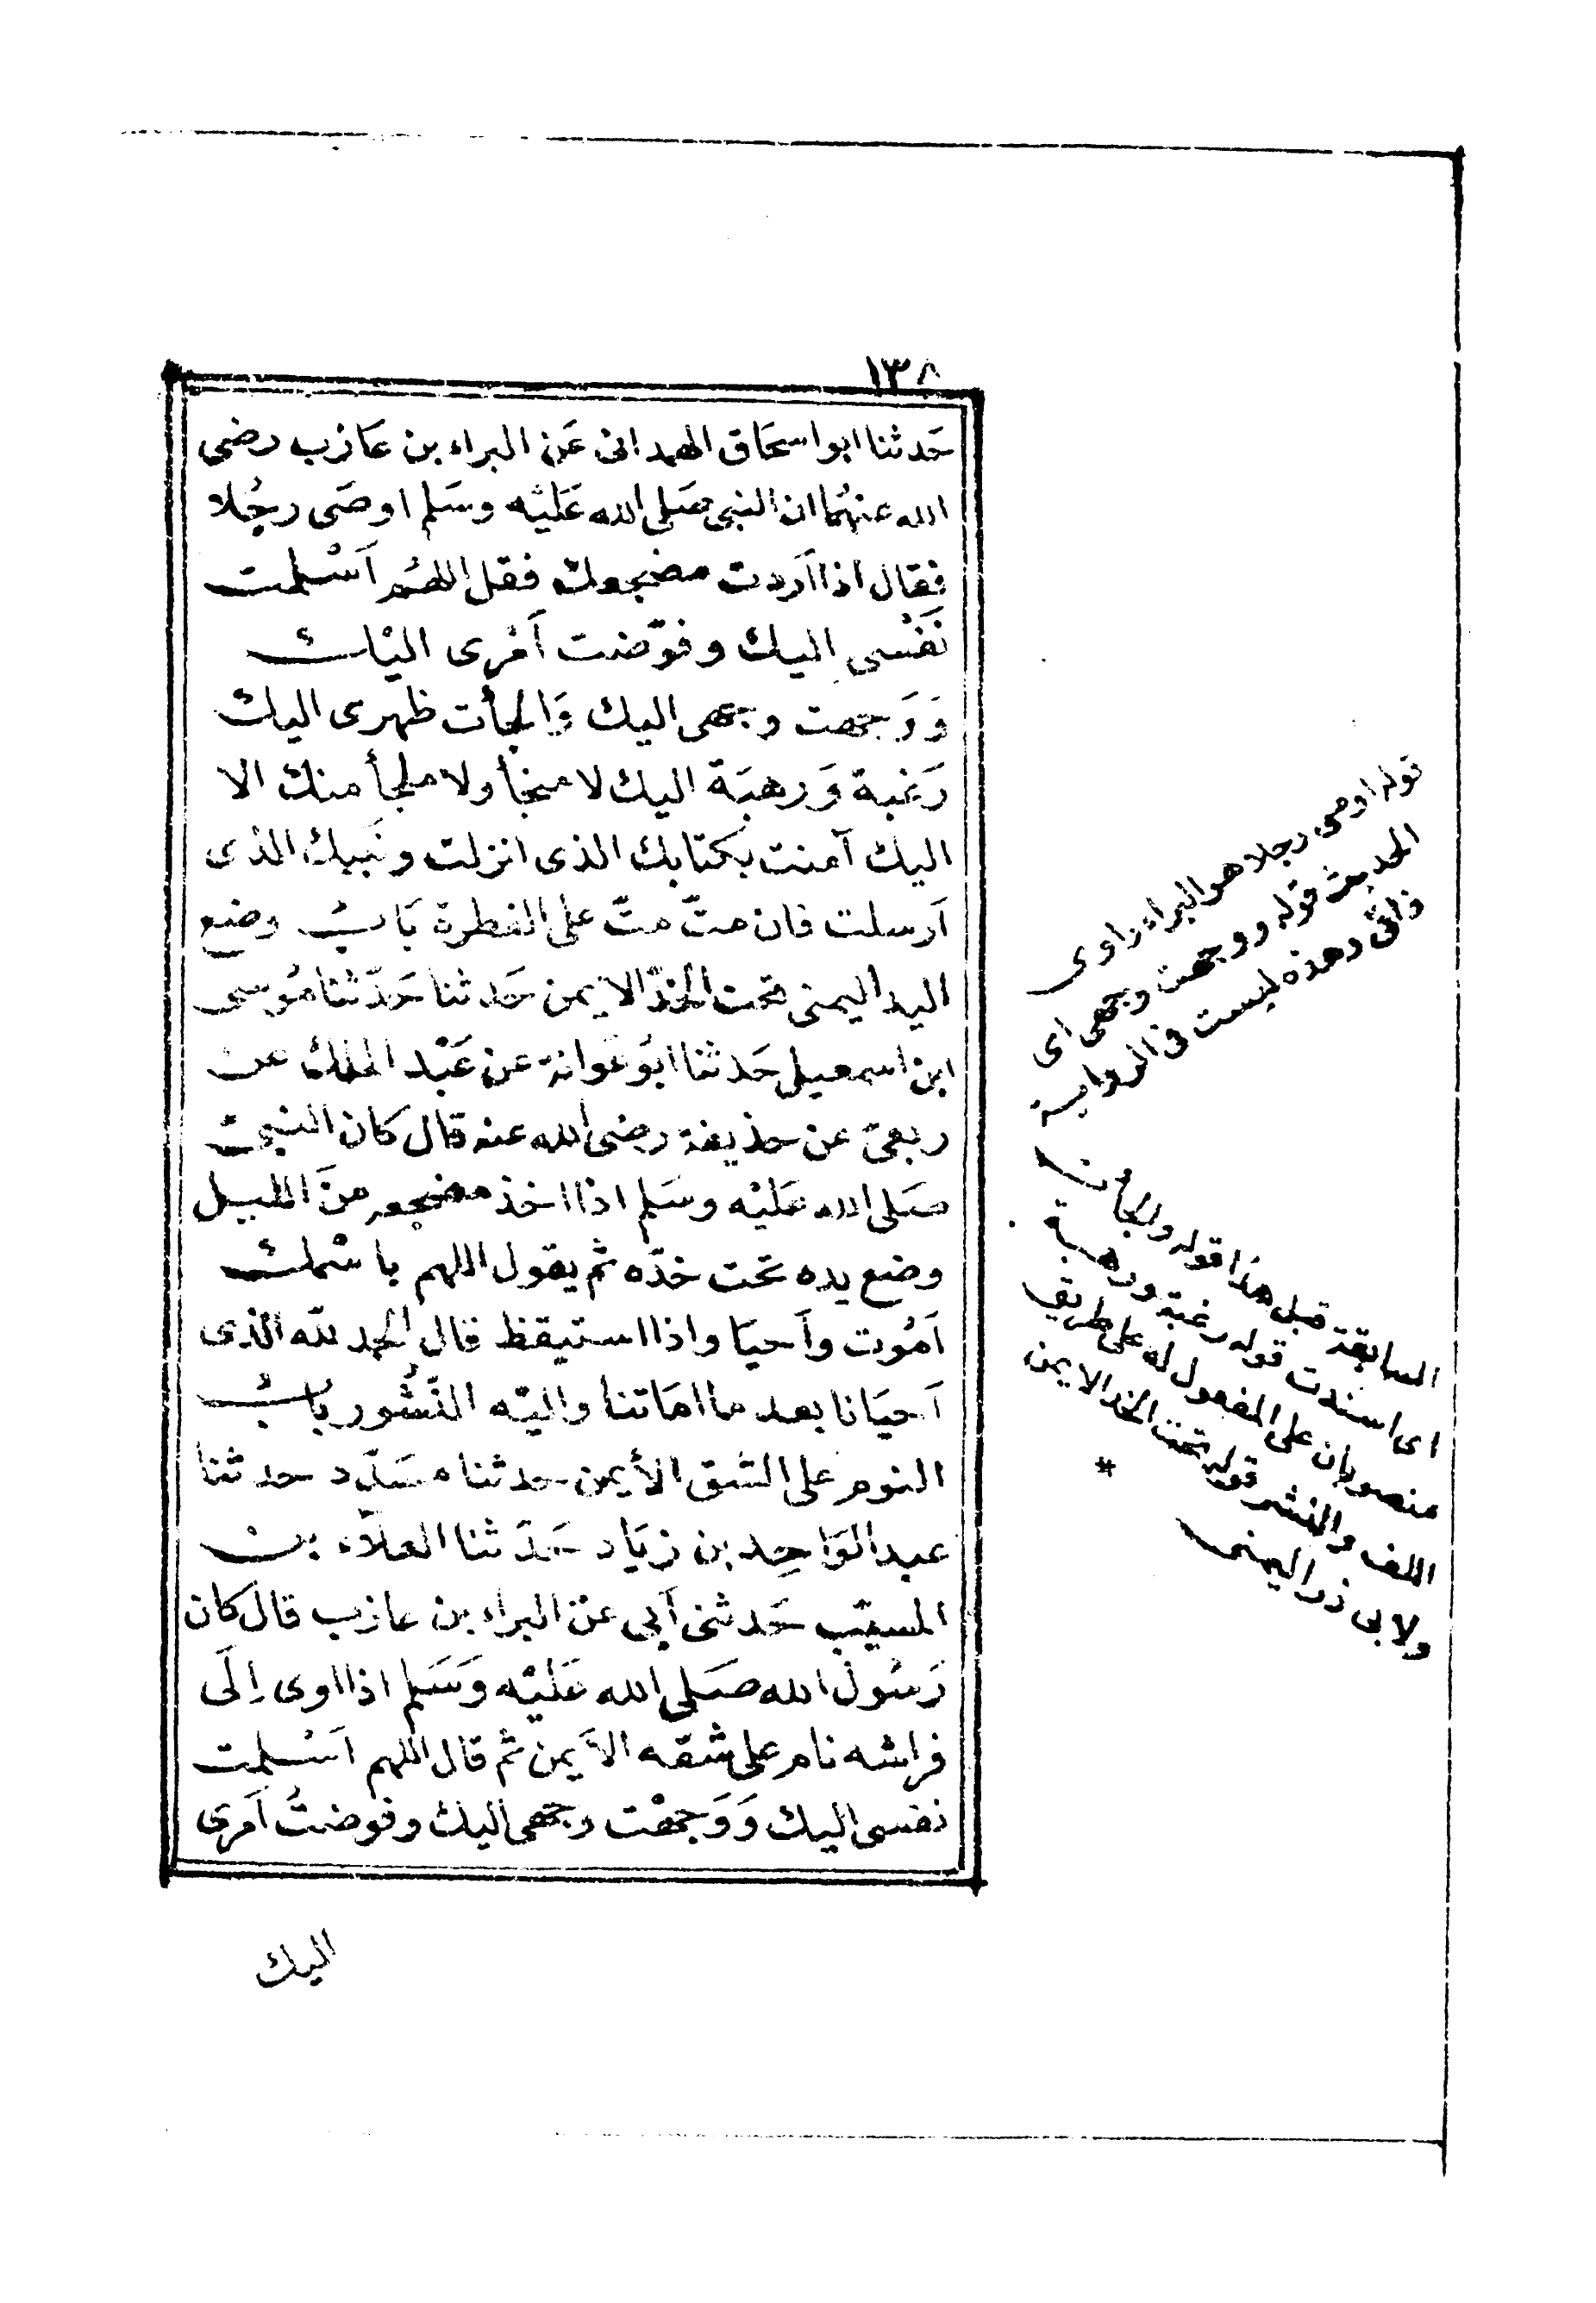 ١٣٨
حَدثنا ابو اسحَاق الهمدانى عَن البراء بن عَازب رضى
الله عنهُما ان النبى صَلى الله عَليْه وسَلم اوصَى رجُلا
فقال اذا اَردت مضجعك فقل اللهُم اَسْلمت
نَفْسى اليك وفوّضت اَمْرى اليْك
وَوَجهت وجهى اليك وَالجأت ظهرى اليك
رَغبة وَرهبَة اليك لا منجأ ولا ملجأ منك الا
اليك آمنت بكتابك الذى انزلت ونَبيك الذى
اَرسلت فان متّ متّ على الفطرة بَابُ وضع
اليد اليمنى تحت الخدّ الايمن حَدثنا حَدّثنا مُوسى
ابن اسمعيل حَدثنا ابَو عَوانة عن عَبْد الملك عن
ربعىّ عن حذيفة رضى الله عنه قال كان النبىّ
صَلى الله عَليْه وسَلم اذا اخذ مضجعه منَ الليل
وضع يده تحت خدّه ثم يقول اللهم باسْمك
اَمُوت واَحيَا واذا استيقظ قال الحمد لله الذى
اَحيَانا بعد ما امَاتنا واليْه النّشُور بابُ
النوم على الشق الأيمن حدثنا مسَدّد حدثنا
عبد الوَاحِد بن زيَاد حَدَثنا العلآء بن
المسيّب حَدثنى اَبى عنْ البراء بن عازب قال كان
رَسُول الله صَلى الله عَليْه وَسَلم اذا اوى اِلَى
فراشه نام على شقه الاَيمن ثم قال اللهم اَسْلمت
نفسى اليك وَوَجهْت وجهى اليك وفوضتُ اَمرى
اليك
قوله اوصى رجلا هو البراء راوى
الحديث قوله ووجهت وجهى اى
ذاتى وهذه ليست فى الرواية
السابقة قبل هذا قوله والجأت
اى اسندت قوله رغبة ورهبة
منصوبان على المفعول له على طريق
اللف والنشر قوله تحت الخد الايمن
ولابى ذر اليمنى